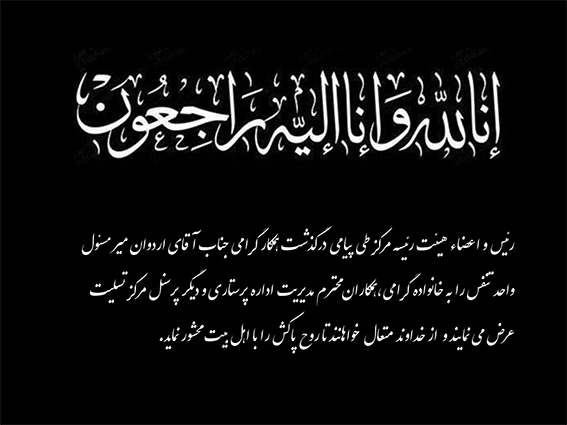 إنا لله وإنا إليه راجعون
رئیس و اعضاء هیئت رئیسه مرکز طی پیامی درگذشت همکار گرامی جناب آقای اردوان میر مسئول
واحد تنفس را به خانواده گرامی، همکاران محترم مدیریت اداره پرستاری و دیگر پرسنل مرکز تسلیت
عرض می نمایند و از خداوند متعال خواهانند تا روح پاکش را با اهل بیت محشور نماید.